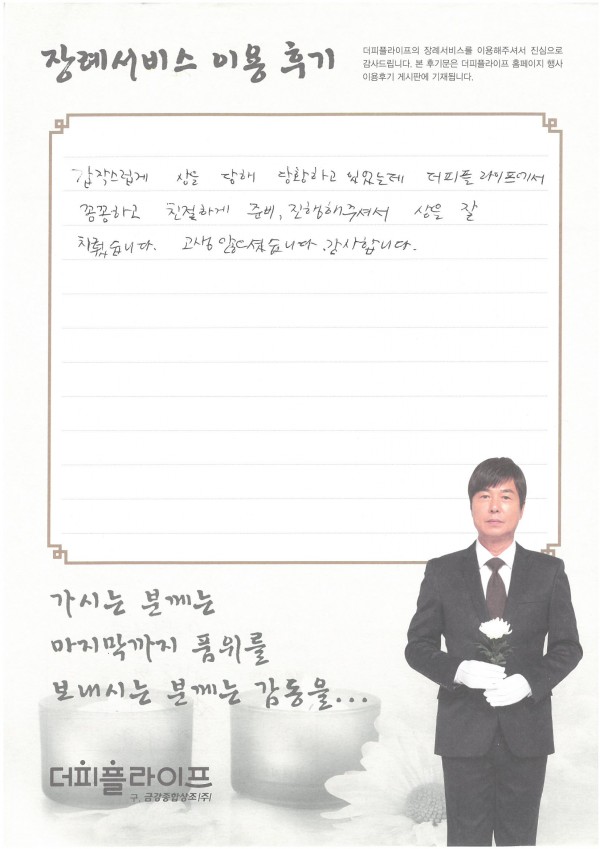 장례서비스 이용 후기
더피플라이프의 장례서비스를 이용해주셔서 진심으로
감사드립니다. 본 후기문은 더피플라이프 홈페이지 행사
이용후기 게시판에 기재됩니다.
갑작스럽게 상을 당해 당황하고 있었는데 더피플 라이프에서
꼼꼼하고 친절하게 준비, 진행해주셔서 상을 잘
치뤘습니다. 고생 많으셨습니다. 감사합니다.
가시는 분께는
마지막까지 품위를
보내시는 분께는 감동을...
더피플라이프
구. 금강종합상조(주)